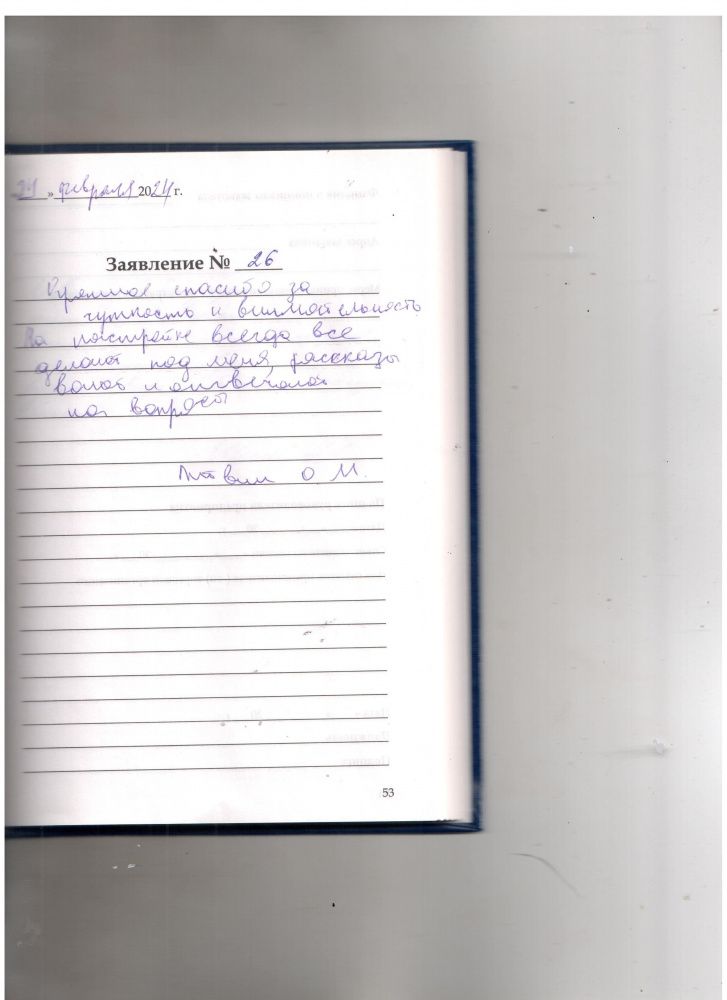 21 » февраля 2024 г.
Заявление № 26
Огромное спасибо за
чуткость и внимательность.
На настройке всегда все
делают под меня, рассказы
вают и отвечают
на вопросы
Литвин О М.
53